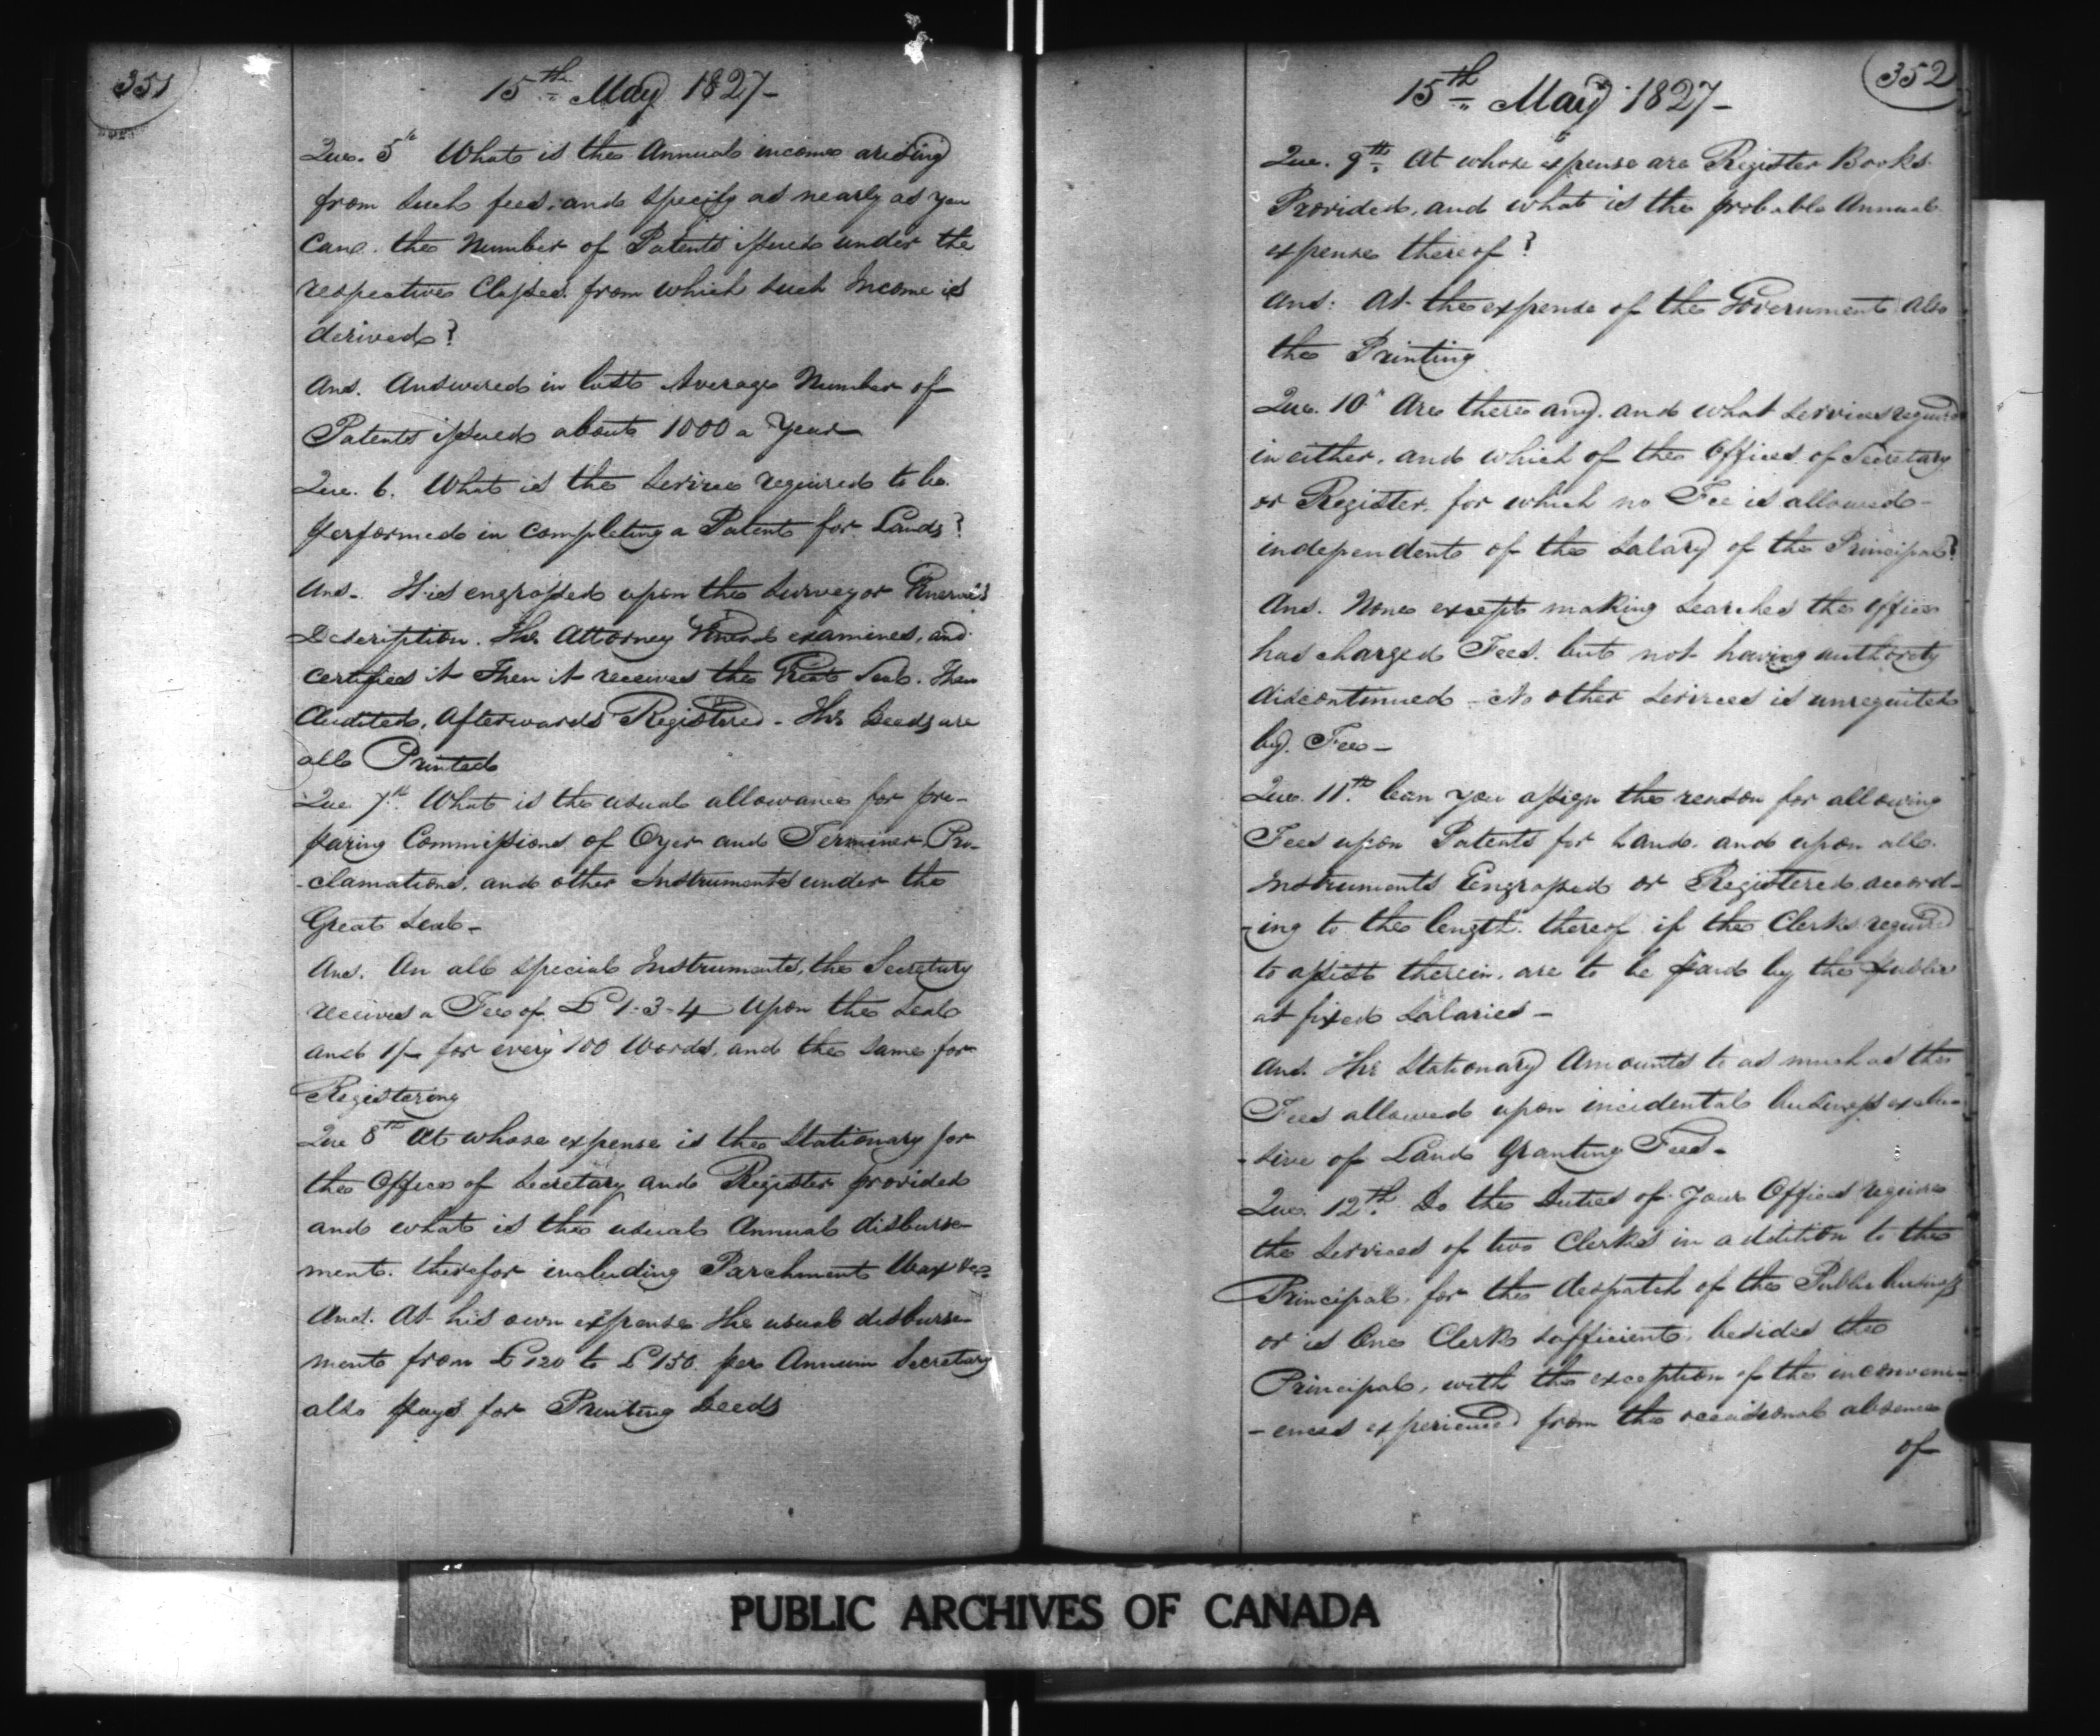 351
15th May 1827-
Que. 5th What is the Annual income arising
from such fees, and specify as nearly as you
can the Number of Patents issued under the
respective Classes from which such Income is
derived?
Ans. Answered in last Average Number of
Patents issued about 1000 a Year
Que. 6. What is the Service required to be
performed in completing a Patent for Lands?
Ans. It is engrossed upon the Surveyor General's
Description. The Attorney General examines, and
certifies it Then it receives the Great Seal. Then
Audited, Afterwards Registered - The Deeds are
all Printed
Que 7th What is the usual allowance for pre-
paring Commissions of Oyer and Terminer, Pro-
-clamations, and other Instruments under the
Great Seal-
Ans. On all special Instruments, the Secretary
receives a Fee of £1-3-4 upon the Seal
and 1/- for every 100 Words, and the same for
Registering
Que 8th At whose expense is the Stationary for
the Offices of Secretary and Register provided
and what is the usual Annual disburse-
ment therefor including Parchment Wax &c?
Ans. At his own expense The usual disburse-
ments from £120 to £150 per Annum Secretary
also pays for Printing Deeds
352
15th May 1827-
Que. 9th At whose expense are Register Books
Provided, and what is the probable Annual
expense thereof?
Ans: At the expense of the Government also
the Printing
Que. 10th Are there any and what Services required
in either, and which of the Offices of Secretary
or Register, for which no Fee is allowed-
independent of the Salary of the Principal?
Ans. None except making Searches the office
has charged Fees but not having authority
discontinued - No other Services is unrequited
by Fee-
Que. 11th Can you assign the reason for allowing
Fees upon Patents for Land, and upon all
Instruments Engrossed or Registered accord-
-ing to the length thereof if the Clerks required
to assist therein, are to be paid by the public
at fixed Salaries-
Ans. The Stationary Amounts to as much as the
Fees allowed upon incidental business exclu-
-sive of Land Granting Fees-
Que. 12th Do the Duties of Your Offices require
the Services of two Clerks in addition to the
Principal, for the despatch of the Public business
or is One Clerk sufficient, besides the
Principal, with the exception of the inconveni-
-ences experienced from the occasional absence
of
PUBLIC ARCHIVES OF CANADA